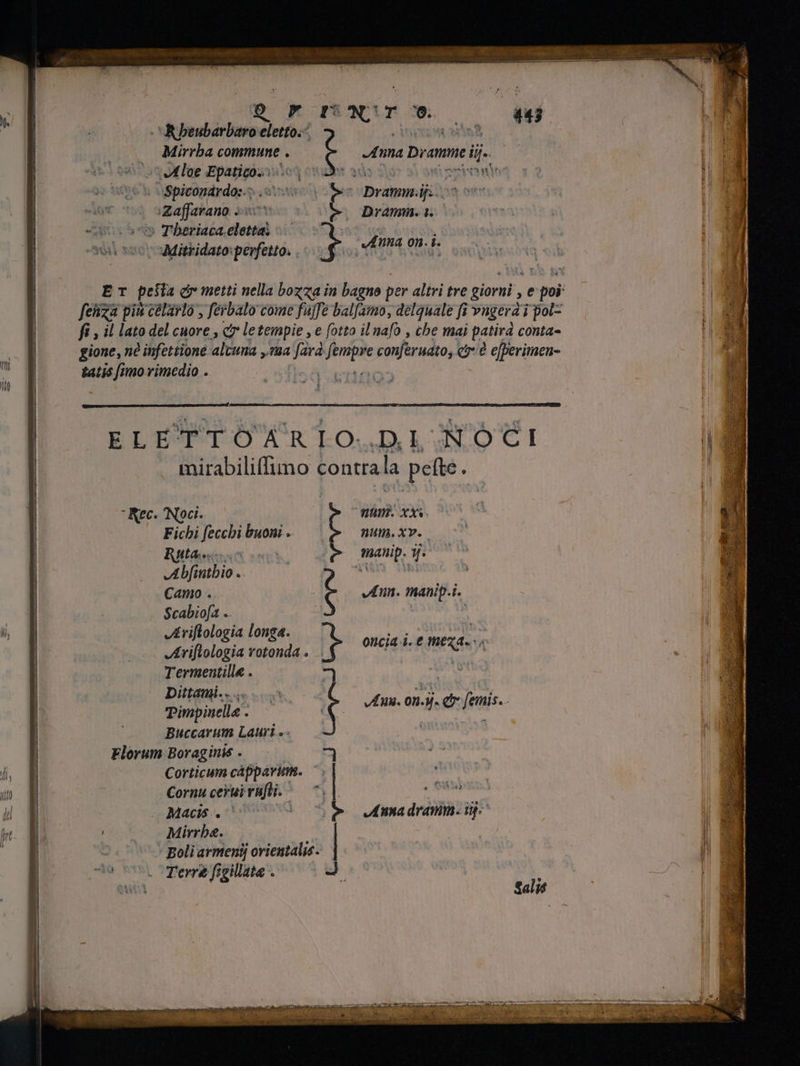 Q V I N T O. 443
Rheubarbaro eletto.
Mirrha commune . Anna Dramme iij.
Aloe Epatico.
Spiconardo. Dramm.ij.
Zaffarano Dramm. 1.
Theriaca eletta.
Mitridato perfetto. Anna on. i.
ET pesta & metti nella bozza in bagno per altri tre giorni , e poi
senza più celarlo , serbalo come fusse balsamo, delquale si vngerà i pol-
si , il lato del cuore , & le tempie , e sotto il naso , che mai patirà conta-
gione, nè infettione alcuna , ma sarà sempre conseruato, & è esperimen-
tatis simo rimedio .
ELETTOARIO DI NOCI
mirabilissimo contra la peste.
Rec. Noci. num. xx.
Fichi secchi buoni . num. xv.
Ruta. manip. ij.
Absinthio .
Camo . Ann. manip.i.
Scabiosa .
Aristologia longa.
Aristologia rotonda . oncia i. e meza.
Termentille .
Dittami. Ann. on.ij. & semis.
Pimpinelle .
Buccarum Lauri .
Florum Boraginis .
Corticum capparum.
Cornu cerui rusti.
Macis . Anna dramm. iij.
Mirrhe.
Boli armenij orientalis.
Terre sigillate .
Salis